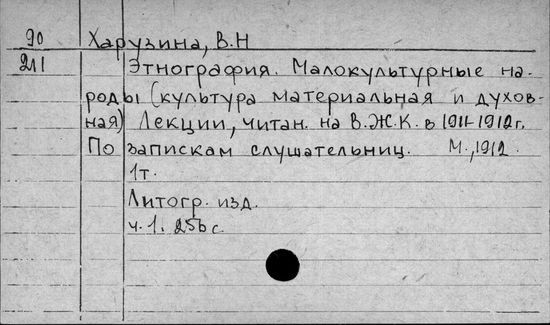 90 Харузина, В.Н
211 Этнография. Малокультурные на-
роды (культура материальная и духов-
ная) Лекции, читан. на В.Ж.К. в 1911-1912 г.
По запискам слушательниц. М., 1912.
1 т.
Литогр. изд.
ч. 1. 256 с.